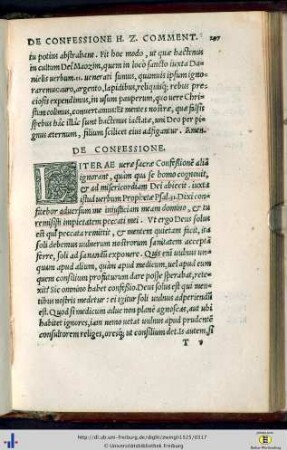 DE CONFESSIONE H. Z. COMMENT. 247
tu potius abstrahent. Fit hoc modo, ut quæ hactenus
in cultum Dei Maozim, quem in loco sancto iuxta Da
nielis uerbum .11. uenerati sumus, quamuis ipsum igno
raremus: auro, argento, lapidibus, reliquisq; rebus pre
ciosis expendimus, in usum pauperum, quo uere Chri
stum colimus, conuertamus: ut mentes nostræ, quæ falsis
spebus hac illac sunt hactenus iactatæ, uni Deo per pi
gnus æternum, filium scilicet eius adfigantur. Amen.
DE CONFESSIONE.
LITERAE uere sacræ Confessionē aliā
ignorant, quàm qua se homo cognoscit,
& ad misericordiam Dei abiecit. iuxta
istud uerbum Prophetæ Psal. 31. Dixi con
fitebor aduersum me iniusticiam meam domino, & tu
remisisti impietatem peccati mei. Vt ergo Deus solus
est qui peccata remittit, & mentem quietam facit, ita
soli debemus uulnerum nostrorum sanitatem acceptā
ferre, soli ad sanandū exponere. Quis em̄ uulnus un
quam exposuit alii, quàm apud medicum, uel apud eum
quem consilium profuturum dare posse sperabat, rete
xit? Sic omnino habet confessio. Deus solus est qui men
tibus nostris medetur: ei igitur soli uulnus adperiendū
est. Quòd si medicum adhuc non planè agnoscas, aut ubi
habitet ignores, iam nemo uetat uulnus apud prudentē
consultorem religes, oresq; ut consilium det. Is autem si
T v
http://dl.ub.uni-freiburg.de/diglit/zwingli1525/0317
© Universitätsbibliothek Freiburg